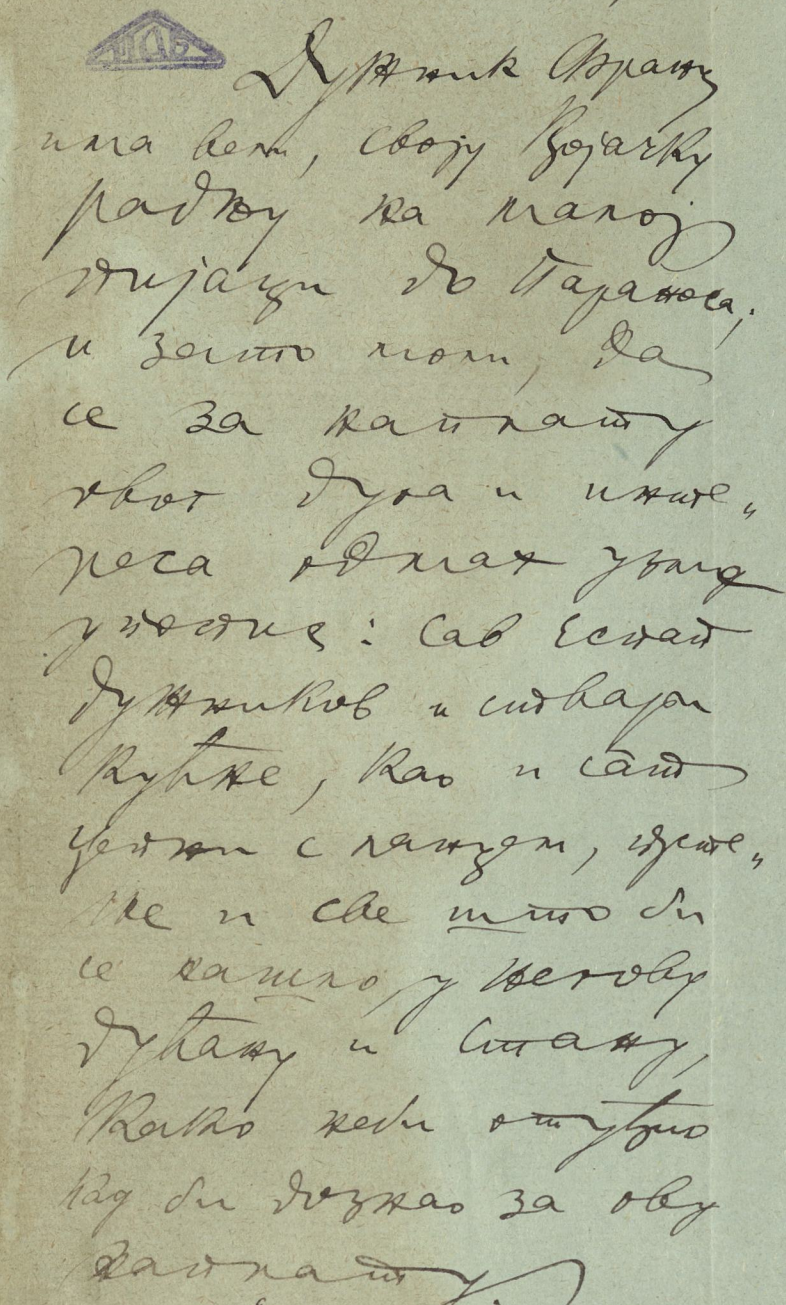 ИАБ
Дужник Франц
има вели, своју Војачку
радњу на малој
пијаци до Параноса;
и зато моли, да
се за наплату
овог дуга и инте„
реса одмах узме
у попис: сав еспап
дужников и ствари
кућне, као и сат
џепни с ланцем,
и све што би
се нашло у његову
дућану и стану,
како неби отуђио
кад би дознао за ову
наплату.